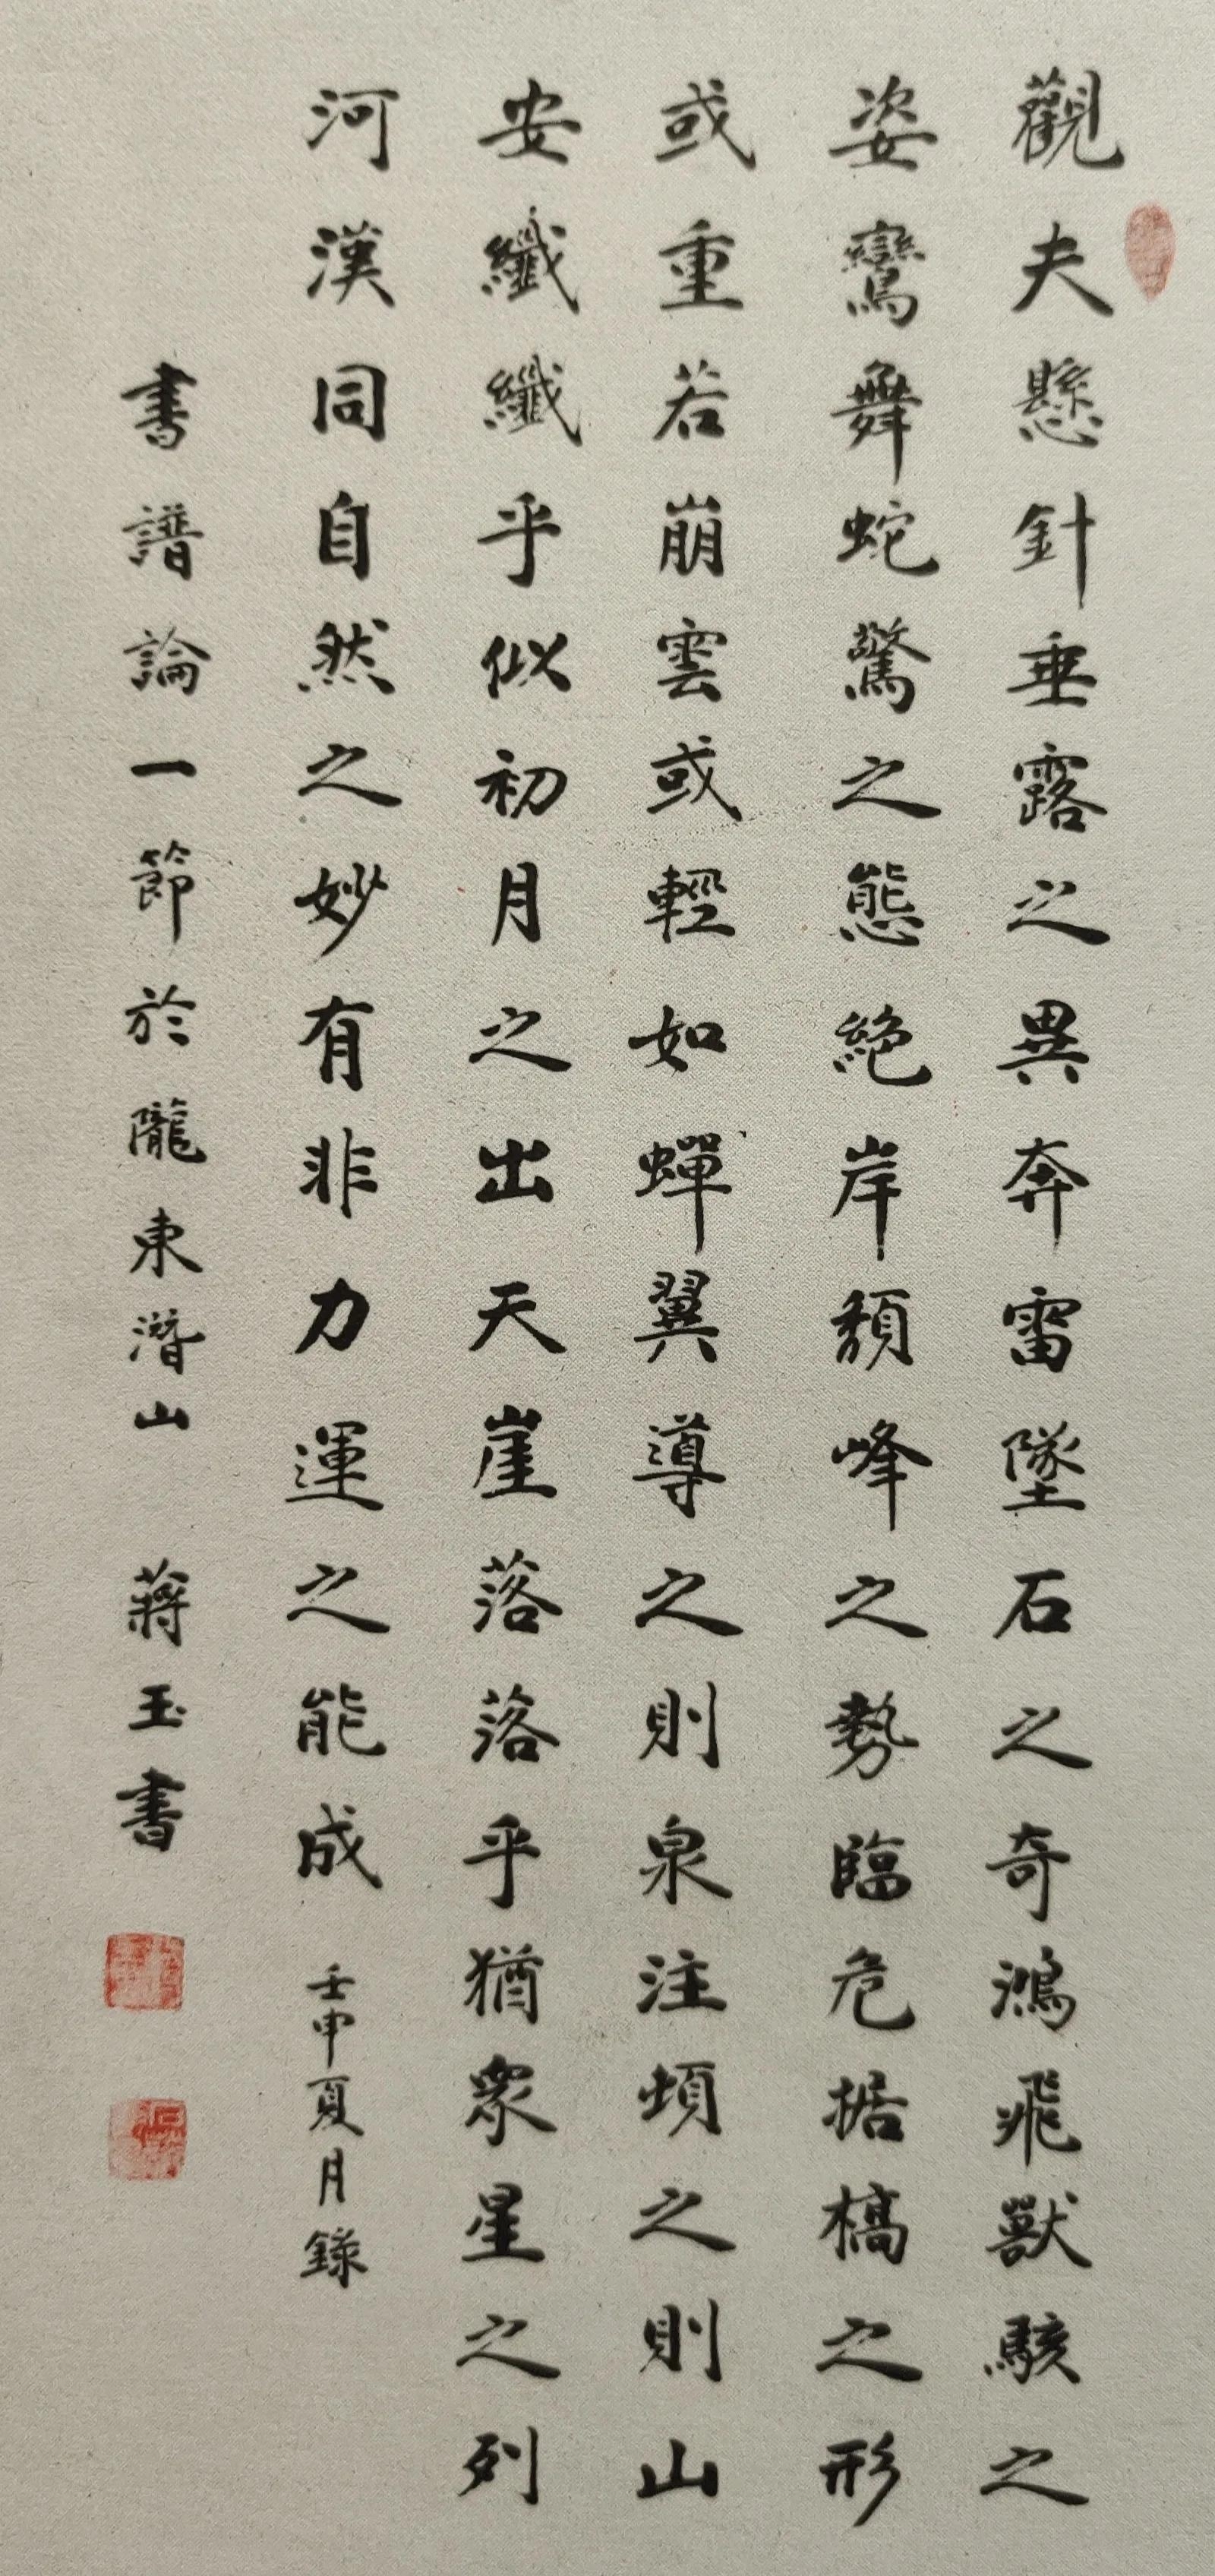 觀夫懸針垂露之異奔雷墜石之奇鴻飛獸駭之
姿鸞舞蛇驚之態絕岸頹峰之勢臨危据槁之形
或重若崩雲或輕如蟬翼導之則泉注頓之則山
安纖纖乎似初月之出天崖落落乎猶衆星之列
河漢同自然之妙有非力運之能成
壬申夏月錄
書譜論一節於隴東潛山
蔣玉書